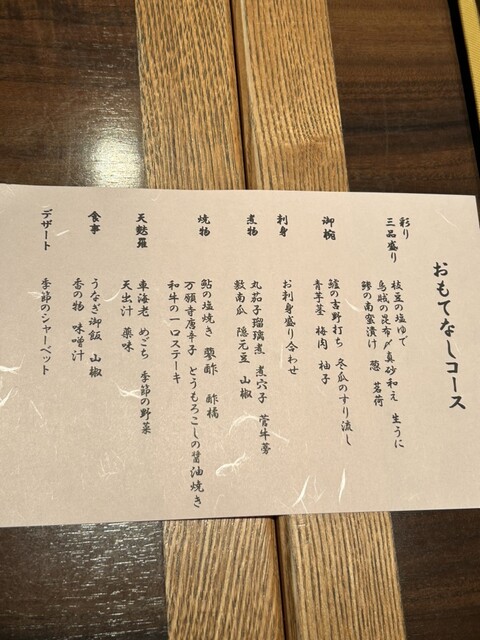 おもてなしコース
彩り
三品盛り
枝豆の塩ゆで
烏賊の昆布〆真砂和え 生うに
鯵の南蛮漬け 葱 茗荷
御椀
鱧の吉野打ち 冬瓜のすり流し
青芋茎 梅肉 柚子
刺身
お刺身盛り合わせ
煮物
丸茄子瑠璃煮 煮穴子 管牛蒡
数南瓜 隠元豆 山椒
焼物
鮎の塩焼き 蓼酢 酢橘
万願寺唐辛子 とうもろこしの醤油焼き
和牛の一口ステーキ
天麩羅
車海老 めごち 季節の野菜
天出汁 薬味
食事
うなぎ御飯 山椒
香の物 味噌汁
デザート
季節のシャーベット